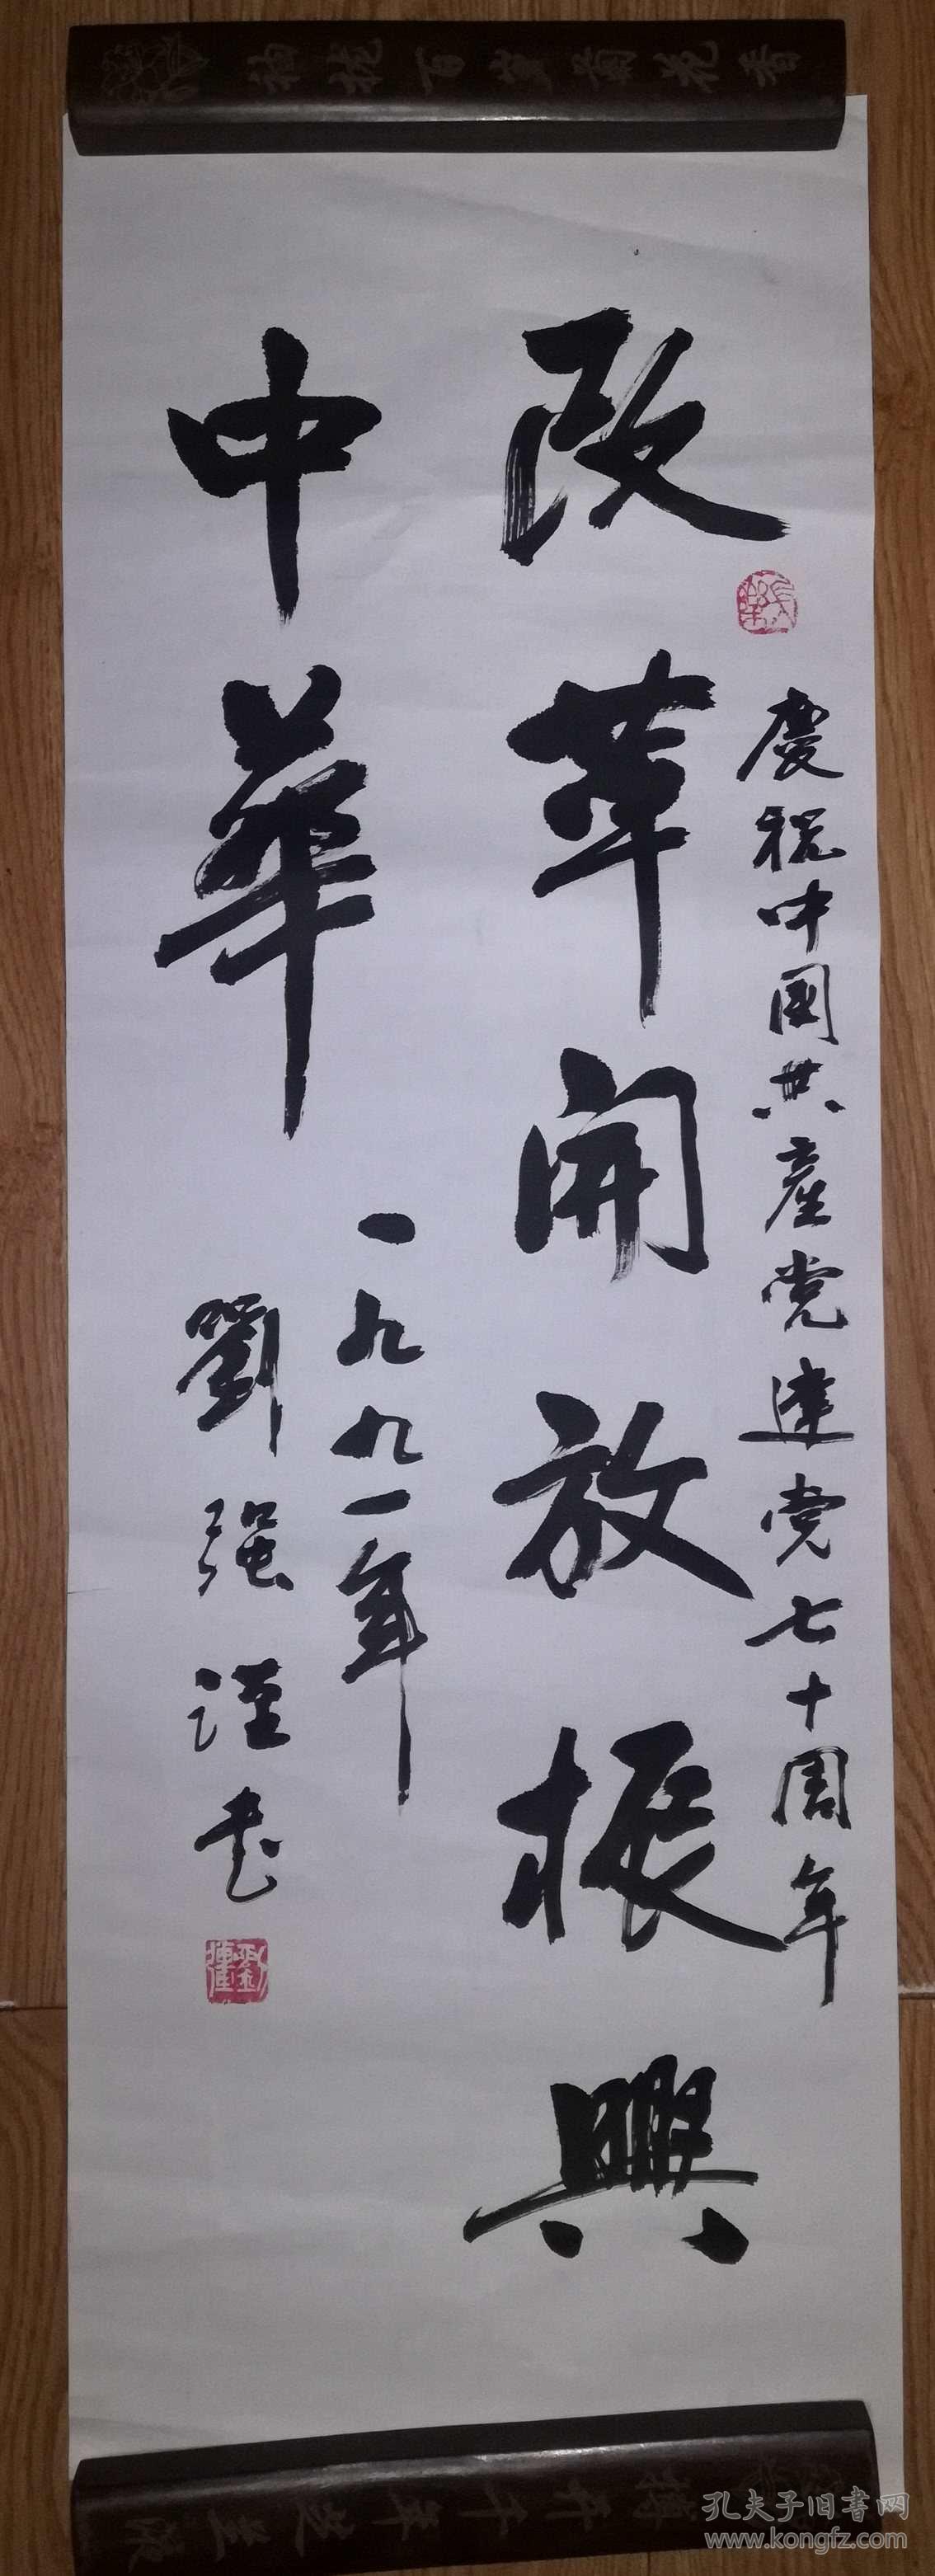 慶祝中國共產党建党七十周年
改革開放振興
中華
一九九一年
劉强謹书
孔夫子旧書网
www.kongfz.com